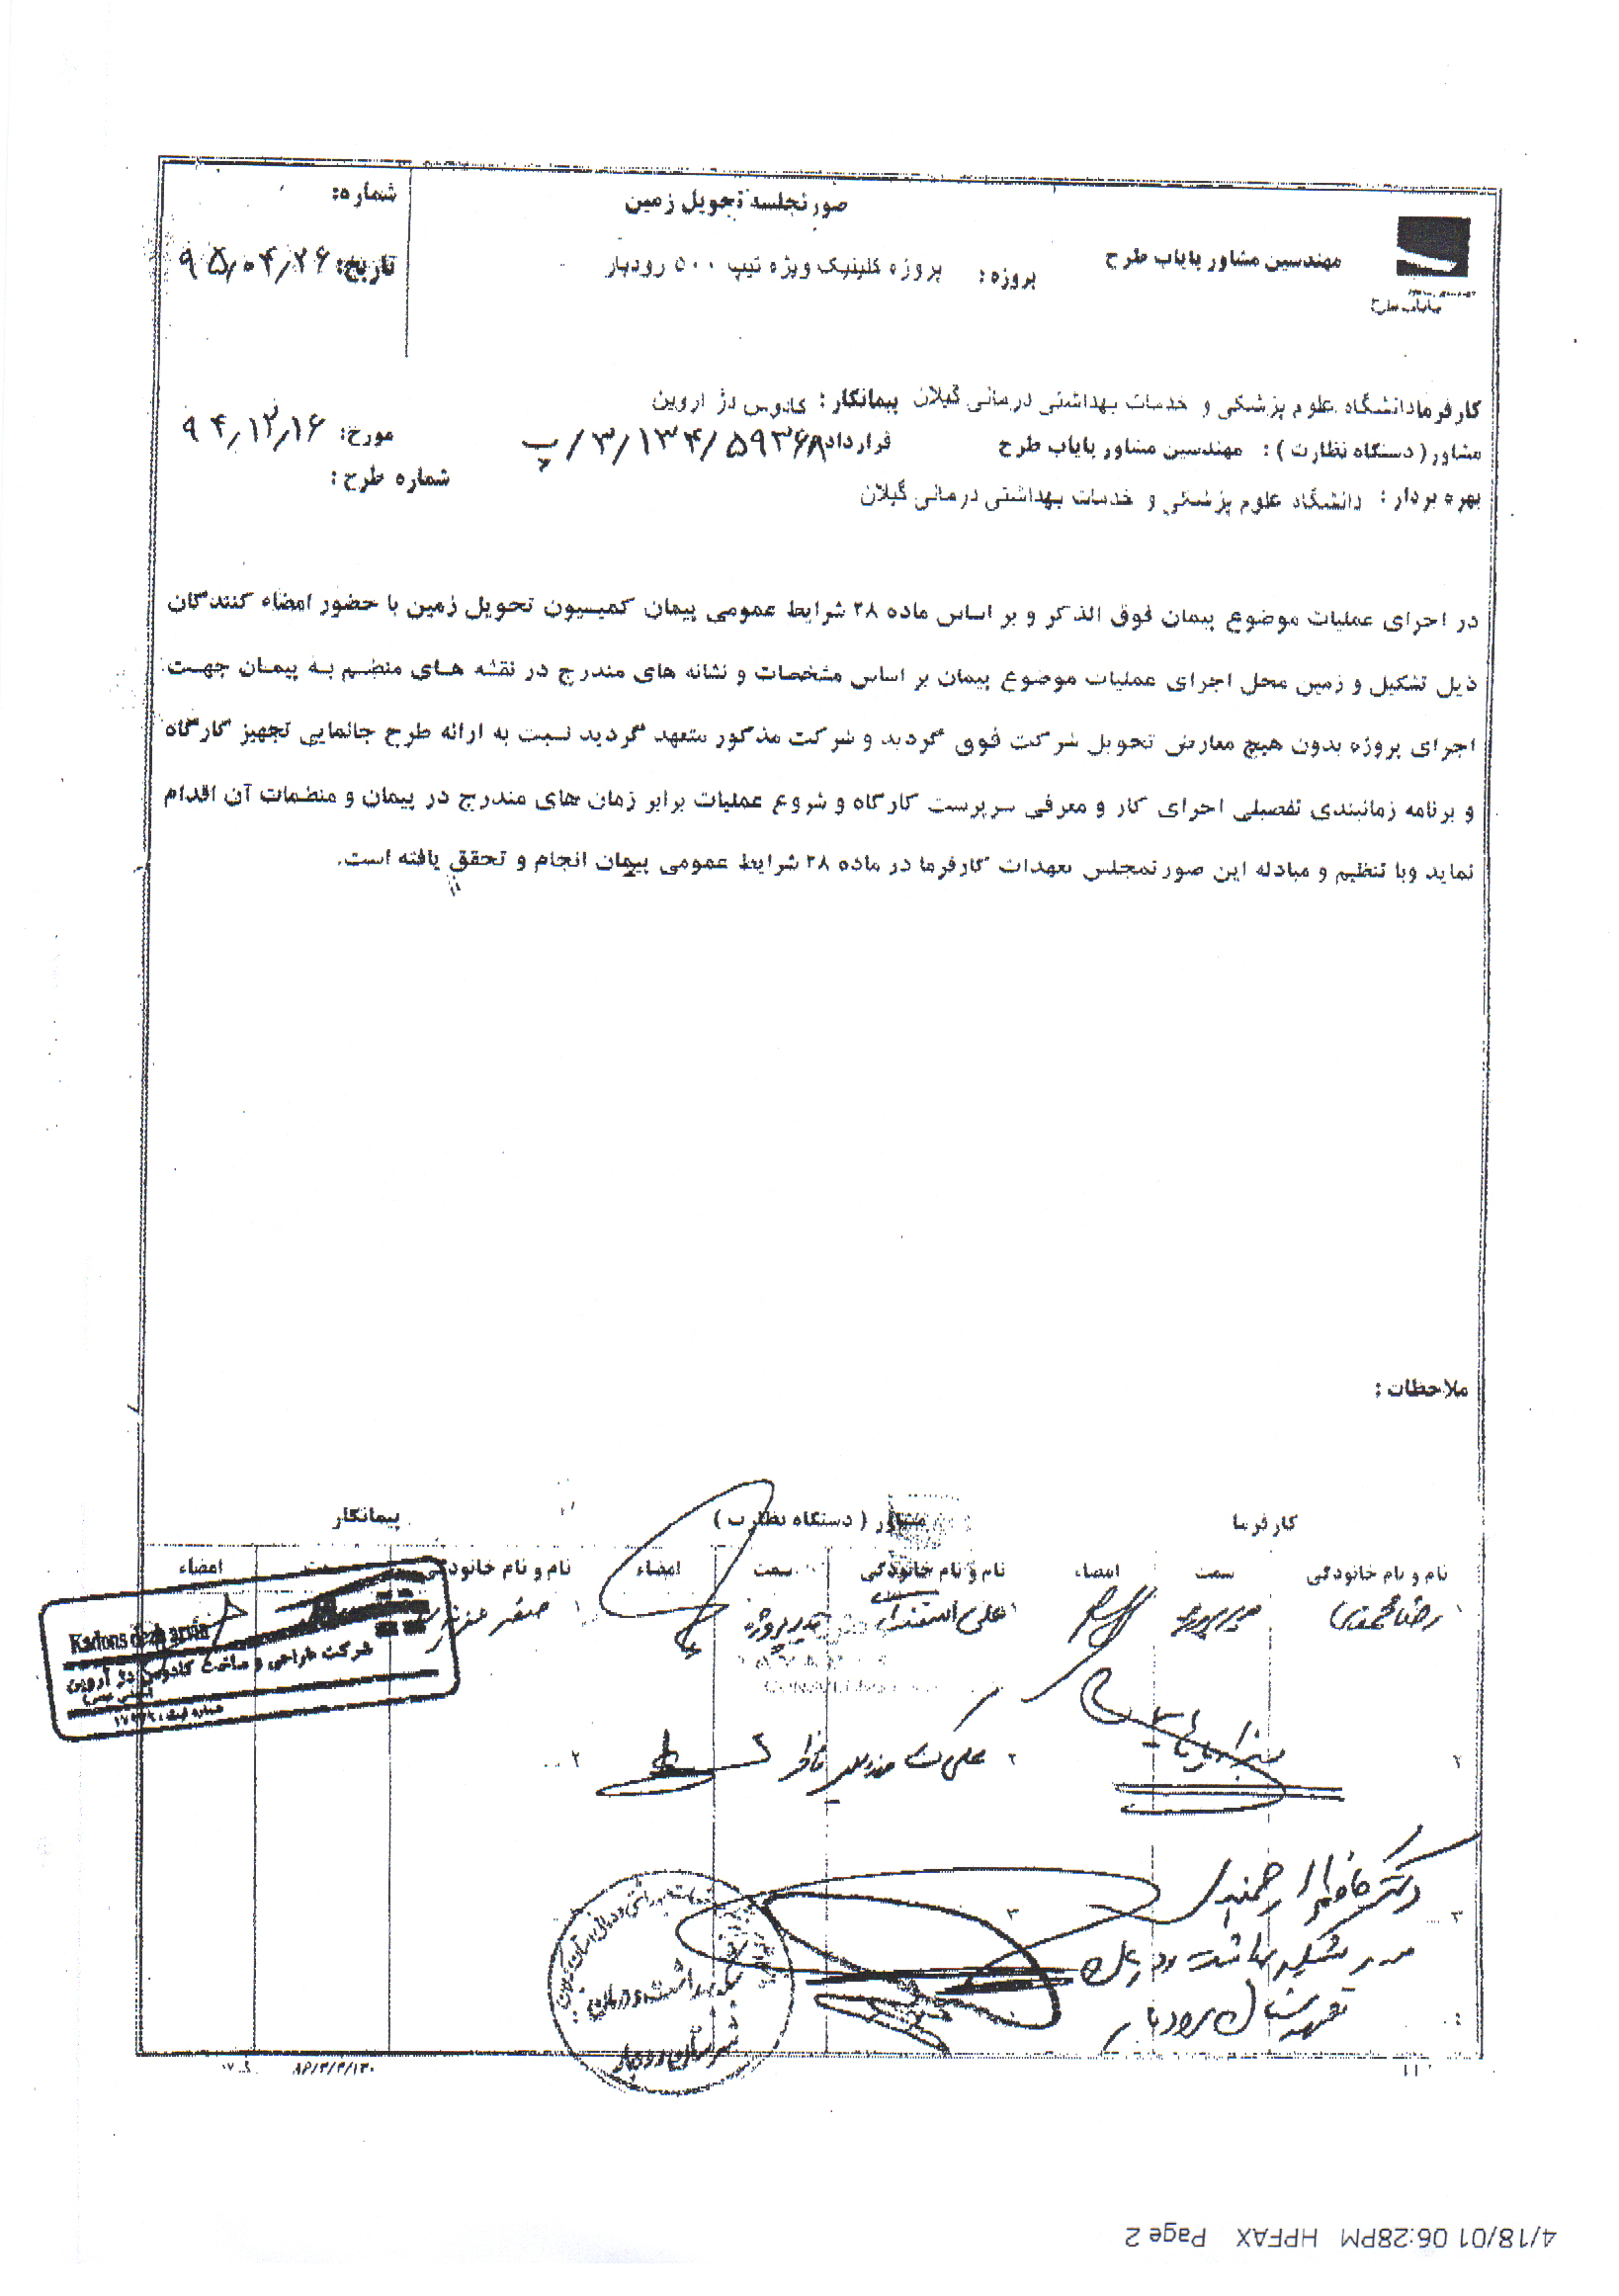 صورتجلسه تحویل زمین
شماره:
مهندسین مشاور پایاب طرح
پروژه : پروژه کلینیک ویژه تیپ ۵۰۰ رودبار
تاریخ: ۹۵/۰۴/۲۶
پایاب طرح
کارفرما دانشگاه علوم پزشکی و خدمات بهداشتی درمانی گیلان پیمانکار : کادوس دژ آروین
مشاور ( دستگاه نظارت ) : مهندسین مشاور پایاب طرح قرارداد ۵۹۳۶۸/۱۳۴/۳/پ مورخ: ۹۴/۱۲/۱۶
شماره طرح :
بهره بردار : دانشگاه علوم پزشکی و خدمات بهداشتی درمانی گیلان
در اجرای عملیات موضوع پیمان فوق الذکر و بر اساس ماده ۲۸ شرایط عمومی پیمان کمیسیون تحویل زمین با حضور امضاء کنندگان
ذیل تشکیل و زمین محل اجرای عملیات موضوع پیمان بر اساس مشخصات و نشانه های مندرج در نقشه های منضم به پیمان جهت
اجرای پروژه بدون هیچ معارض تحویل شرکت فوق گردید و شرکت مذکور متعهد گردید نسبت به ارائه طرح جانمایی تجهیز کارگاه
و برنامه زمانبندی تفصیلی اجرای کار و معرفی سرپرست کارگاه و شروع عملیات برابر زمان های مندرج در پیمان و منظمات آن اقدام
نماید وبا تنظیم و مبادله این صورتمجلس تعهدات کارفرما در ماده ۲۸ شرایط عمومی پیمان انجام و تحقق یافته است.
ملاحظات :
کارفرما مشاور ( دستگاه نظارت ) پیمانکار
نام و نام خانودگی سمت امضاء نام و نام خانودگی سمت امضاء نام و نام خانودگی سمت امضاء
۱ رضا ۱ علی مدیر پروژه ۱ صفر
Kadous dezh arvin
شرکت طراحی و ساخت کادوس دژ آروین
شماره ثبت :
۲ ۲ ناظر ۲
۳ دکتر ۳
مدیر شبکه بهداشت و درمان
شهرستان رودبار
۸۶/۳/۴/۱۳۰
4/18/01 06:28PM HPFAX Page 2